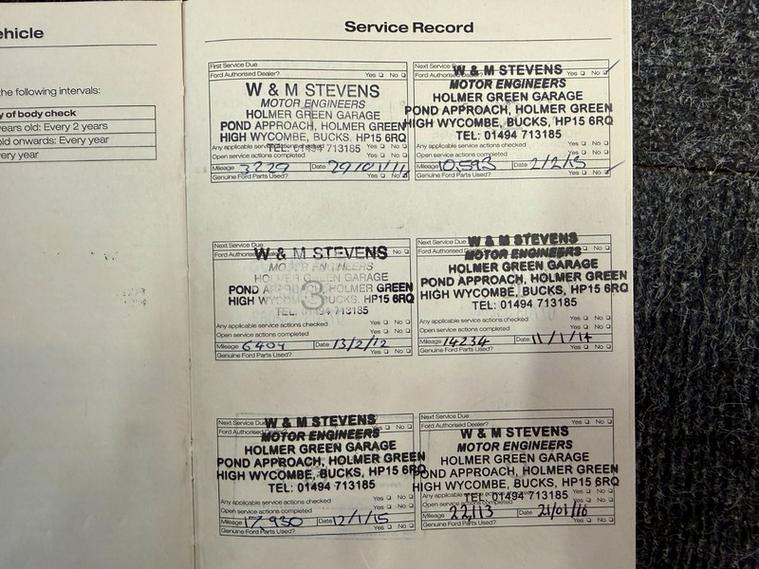 ehicle
the following intervals:
y of body check
ears old: Every 2 years
old onwards: Every year
ery year
Service Record
First Service Due
Ford Authorised Dealer? Yes No
W & M STEVENS
MOTOR ENGINEERS
HOLMER GREEN GARAGE
POND APPROACH, HOLMER GREEN
HIGH WYCOMBE, BUCKS. HP15 6RQ
TEL: 01494 713185
Any applicable service actions checked Yes No
Open service actions completed Yes No
Mileage 3229 Date 29/01/11
Genuine Ford Parts Used? Yes No
Next Service Due
Ford Authorised Dealer? Yes No
W & M STEVENS
MOTOR ENGINEERS
HOLMER GREEN GARAGE
POND APPROACH, HOLMER GREEN
HIGH WYCOMBE, BUCKS, HP15 6RQ
TEL: 01494 713185
Any applicable service actions checked Yes No
Open service actions completed Yes No
Mileage 10593 Date
Genuine Ford Parts Used? Yes No
Next Service Due
Ford Authorised No
W & M STEVENS
MOTOR ENGINEERS
HOLMER GREEN GARAGE
POND APPROACH, HOLMER GREEN
HIGH WYCOMBE, BUCKS. HP15 6RQ
3
TEL: 01494 713185
Any applicable service actions checked Yes No
Open service actions completed Yes No
Mileage 6404 Date 13/2/12
Genuine Ford Parts Used? Yes No
Next Service Due
Ford Authorised Yes No
W & M STEVENS
MOTOR ENGINEERS
HOLMER GREEN GARAGE
POND APPROACH, HOLMER GREEN
HIGH WYCOMBE, BUCKS, HP15 6RQ
TEL: 01494 713185
Any applicable service actions checked Yes No
Open service actions completed Yes No
Mileage 14234 Date 11/1/14
Genuine Ford Parts Used? Yes No
Next Service Due
Ford Authorised Yes No
W & M STEVENS
MOTOR ENGINEERS
HOLMER GREEN GARAGE
POND APPROACH, HOLMER GREEN
HIGH WYCOMBE, BUCKS, HP15 6RQ
TEL: 01494 713185
Any applicable service actions checked Yes No
Open service actions completed Yes No
Mileage 17,930 Date 12/1/15
Genuine Ford Parts Used? Yes No
Next Service Due
Ford Authorised Dealer? Yes No
W & M STEVENS
MOTOR ENGINEERS
HOLMER GREEN GARAGE
POND APPROACH, HOLMER GREEN
HIGH WYCOMBE, BUCKS, HP15 6RQ
TEL: 01494 713185
Any applicable service actions checked Yes No
Open service actions completed Yes No
Mileage 22,113 Date 21/01/16
Genuine Ford Parts Used? Yes No